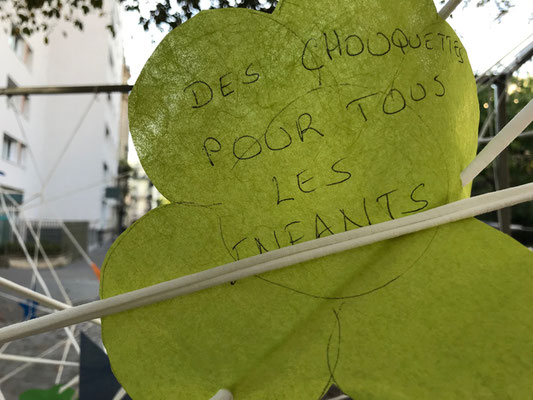 DES CHOUQUETTES
POUR TOUS
LES
ENFANTS